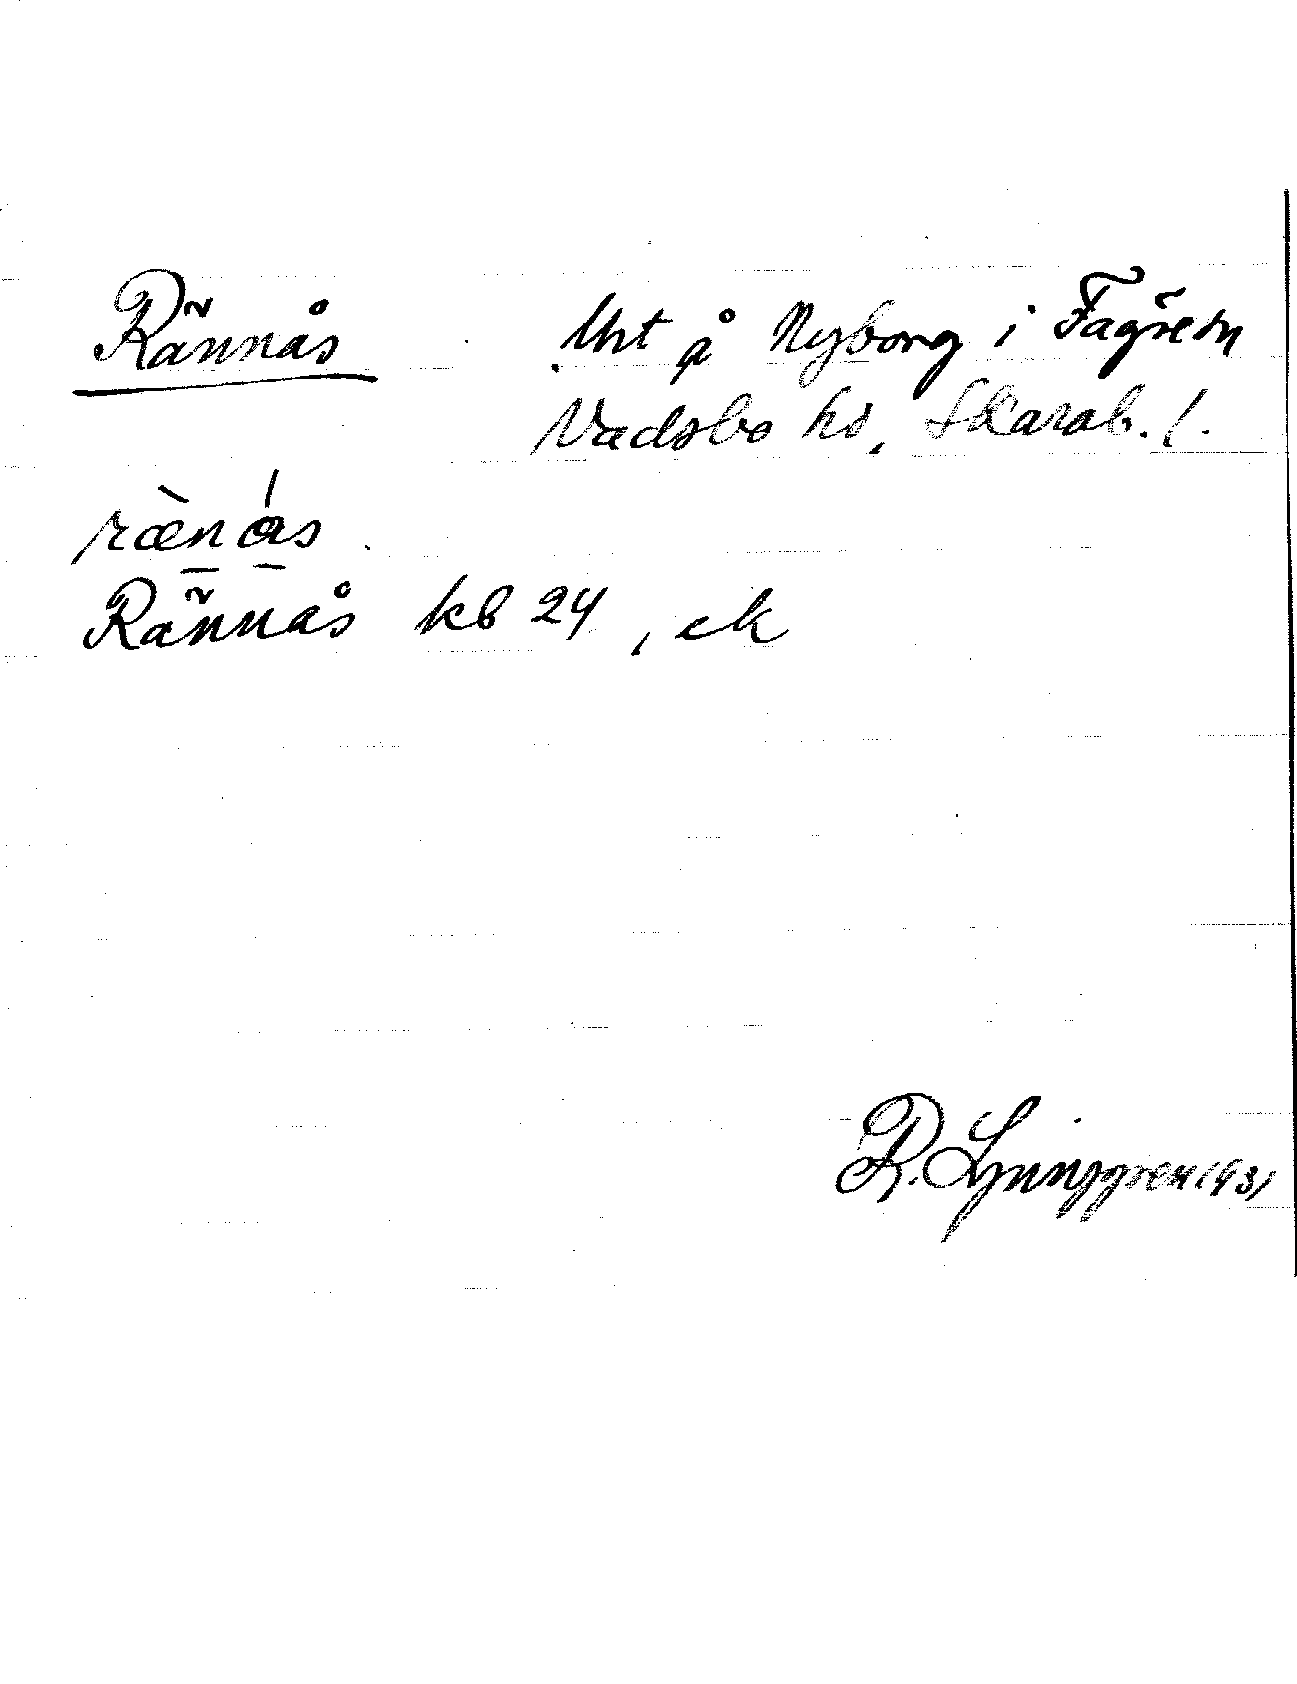 Rännås
Urt å Nyborg i Fägre sn
Vadsbo hd, Skarab. l.
rænås
Rännås kb 24, ek
R. Ljunggren 1931